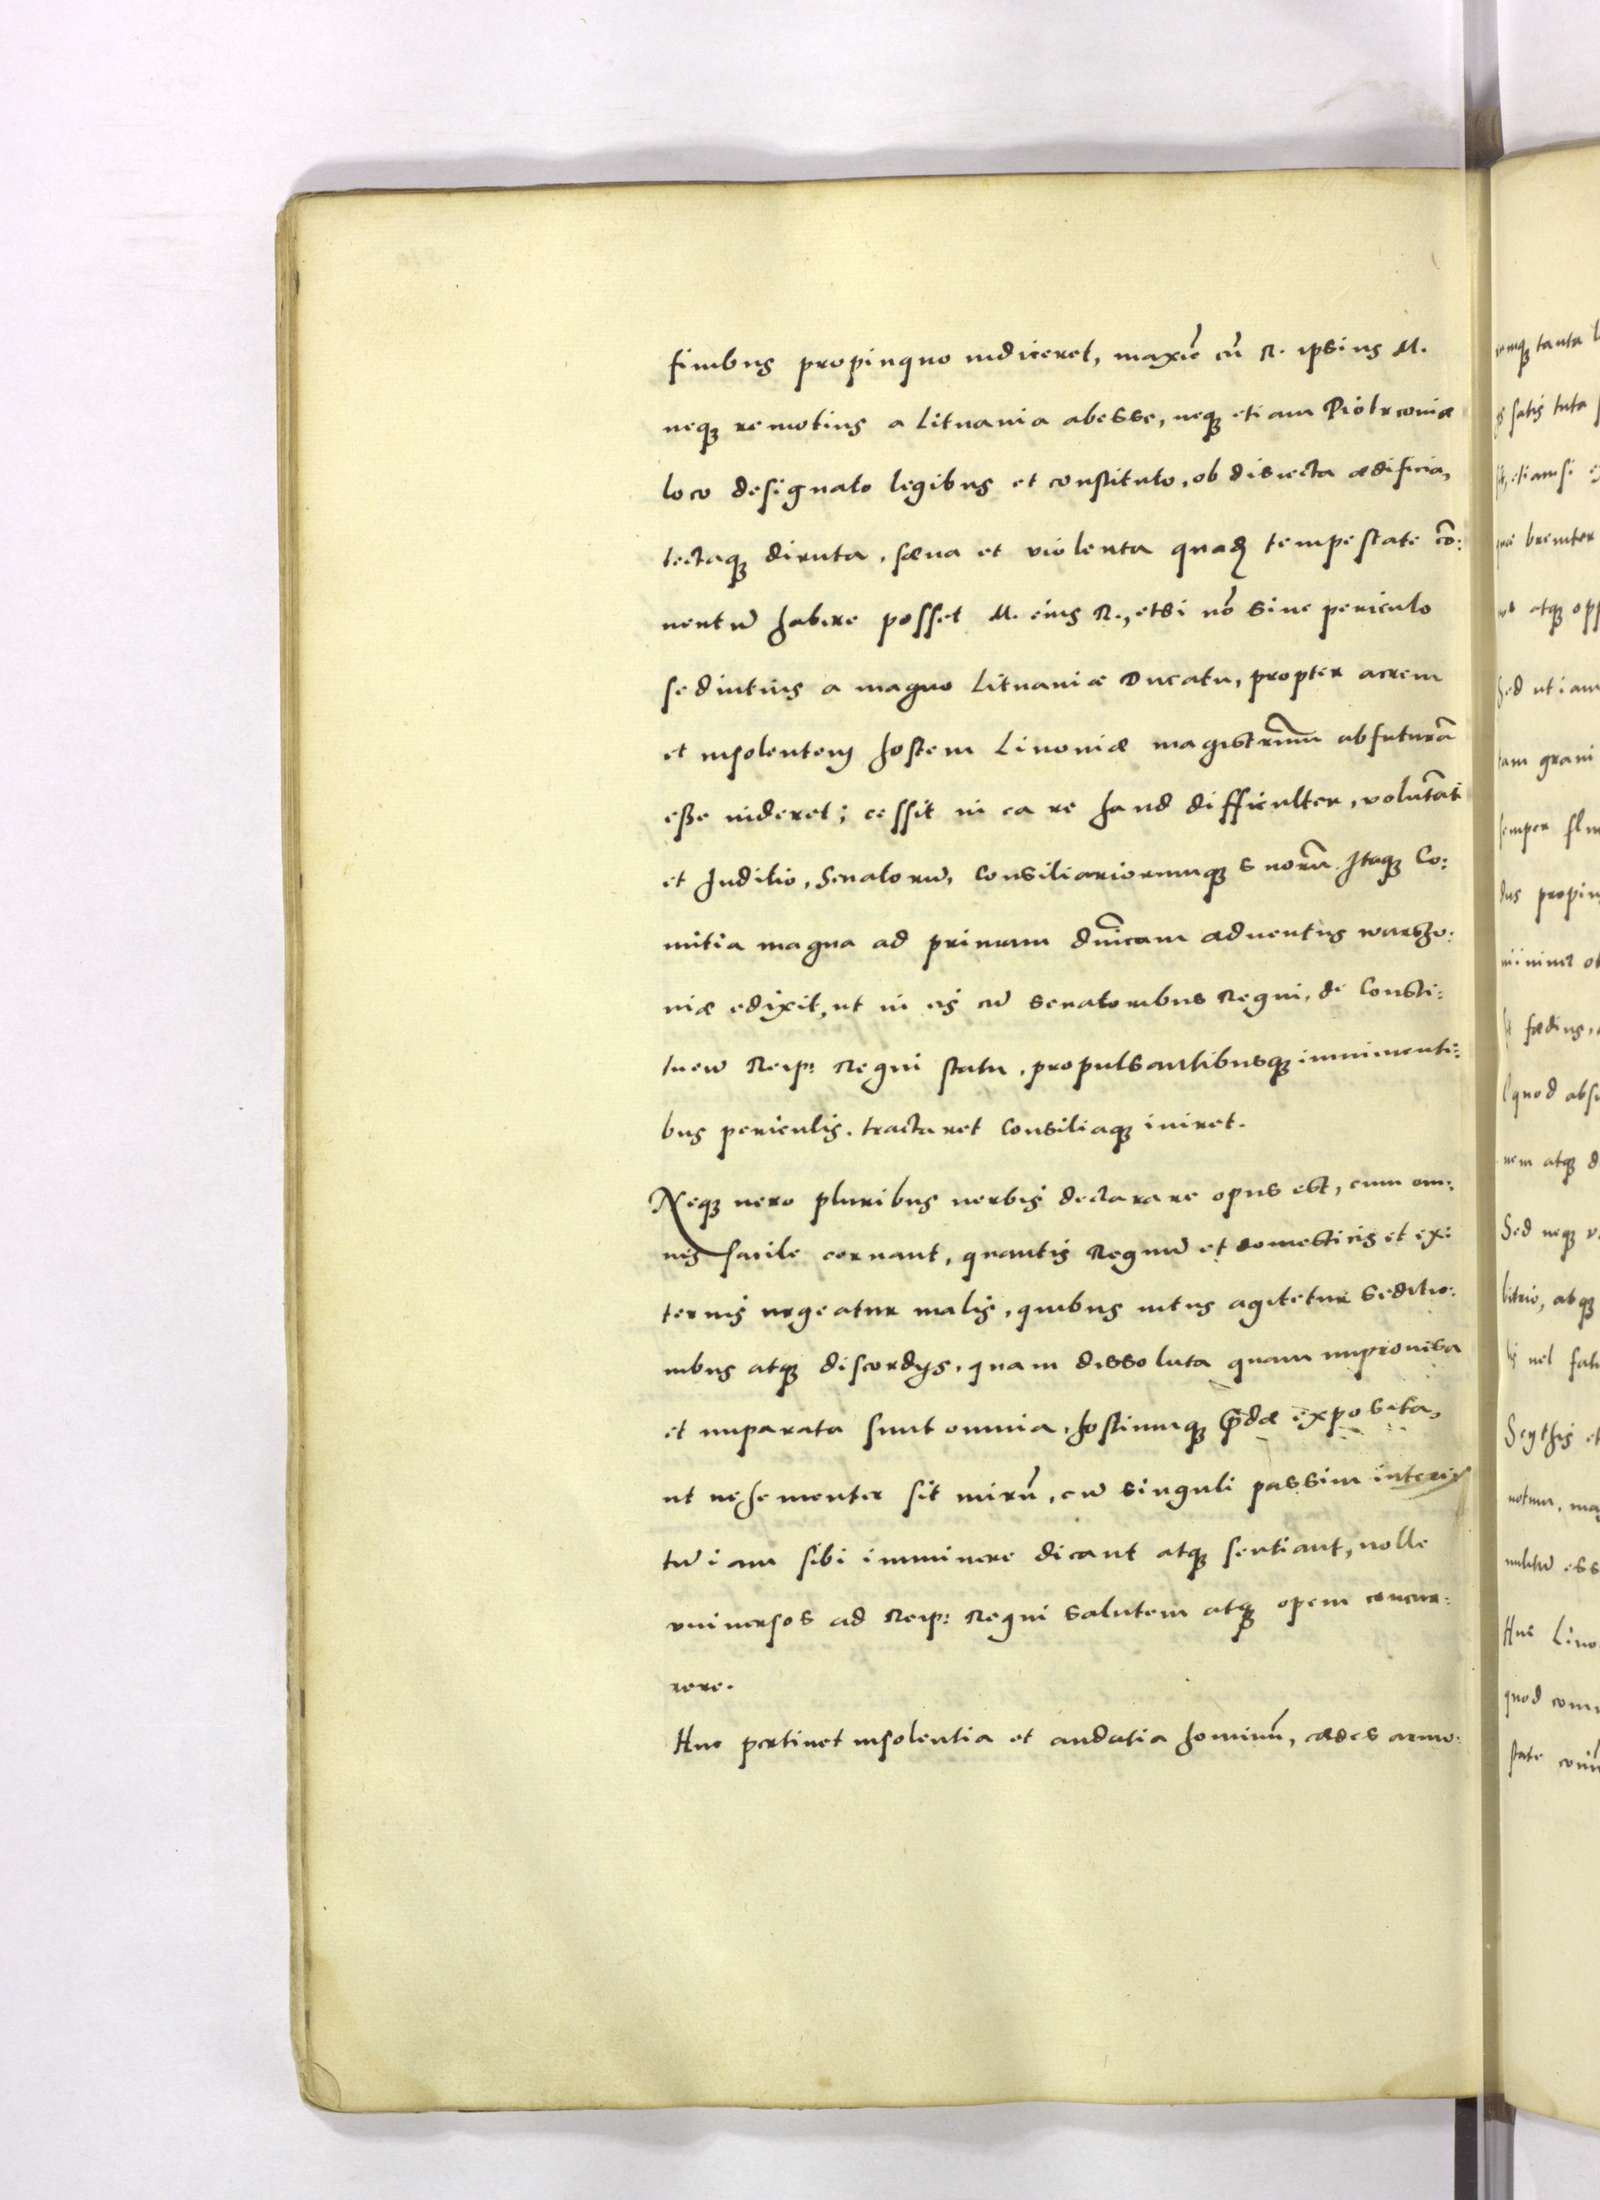 finibus propinquo indiceret, maxīe cū R. ipsius M.
neqꝫ remotius a Lituania abesse, neqꝫ etiam Piotrconiæ
loco designato legibus et constituto, ob disiecta ædificia,
tectaqꝫ diruta, sæua et violenta quadꝫ tempestate cō:
uentū habere posset M. eius R., etsi nō sine periculo
se diutius a magno Lituaniæ Ducatu, propter acrem
et insolentem hostem Liuoniæ magistrum abfuturā
eße uideret; cessit in ea re haud difficulter, volūtati
et Juditio, Senatorū, Consiliariorumqꝫ suorū. Itaqꝫ Co:
mitia magna ad primam dn̄icam aduentus warszo:
uiæ edixit, ut in eis cū senatoribus Regni, de Consti:
tuen Reip: Regni statu, propulsantibusqꝫ imminenti:
bus periculis, tractaret Consiliaqꝫ iniret.
Neqꝫ uero pluribus uerbis declarare opus est, cum om:
nes facile cernant, quantis Regnū et domesticis et ex:
ternis urgeatur malis, quibus intus agitetur seditio:
nibus atqꝫ discordijs, quam dissoluta quam improuisa
et imparata sunt omnia, hostiumqꝫ p̄dæ exposita,
ut uehementer sit mirū, cū singuli passim interi
tū iam sibi imminere dicant atqꝫ sentiant, nolle
vniuersos ad Reip: Regni salutem atqꝫ opem concur:
rere.
Huc pertinet insolentia et audatia hominū, cædes armo:
tanta
satis tuta
etiamsi
breuiter
atqꝫ
Sed ut iam
tam graui
semper
propin
fœdus,
quod abs
nem atqꝫ d
Sed neqꝫ
bitrio, absqꝫ
uel
Scythis et
Huc Liuo
quod com
state